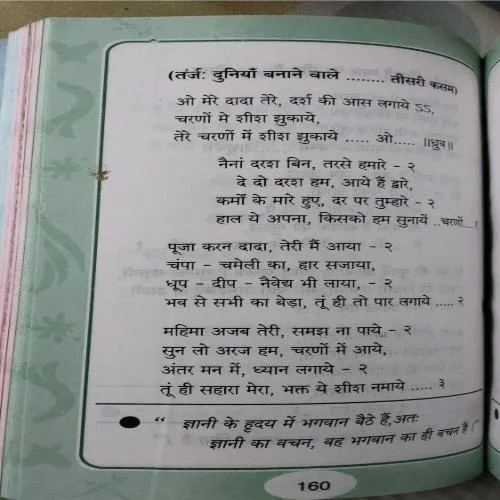 (तर्ज: दुनियाँ बनाने वाले ........ तीसरी कसम)
ओ मेरे दादा तेरे, दर्श की आस लगाये ऽऽ,
चरणों मे शीश झुकाये,
तेरे चरणों में शीश झुकाये ..... ओ..... ॥ध्रुव॥
नैनां दरश बिन, तरसे हमारे - २
दे दो दरश हम, आये हैं द्वारे,
कर्मों के मारे हुए, दर पर तुम्हारे - २
हाल ये अपना, किसको हम सुनायें ..चरणों....१
पूजा करन दादा, तेरी मैं आया - २
चंपा - चमेली का, हार सजाया,
धूप - दीप - नैवेद्य भी लाया, - २
भव से सभी का बेड़ा, तूं ही तो पार लगाये ..... २
महिमा अजब तेरी, समझ ना पाये - २
सुन लो अरज हम, चरणों में आये,
अंतर मन में, ध्यान लगाये - २
तूं ही सहारा मेरा, भक्त ये शीश नमाये ..... ३
● “ ज्ञानी के हृदय में भगवान बैठे हैं,अतः
ज्ञानी का वचन, वह भगवान का ही वचन है।”
160